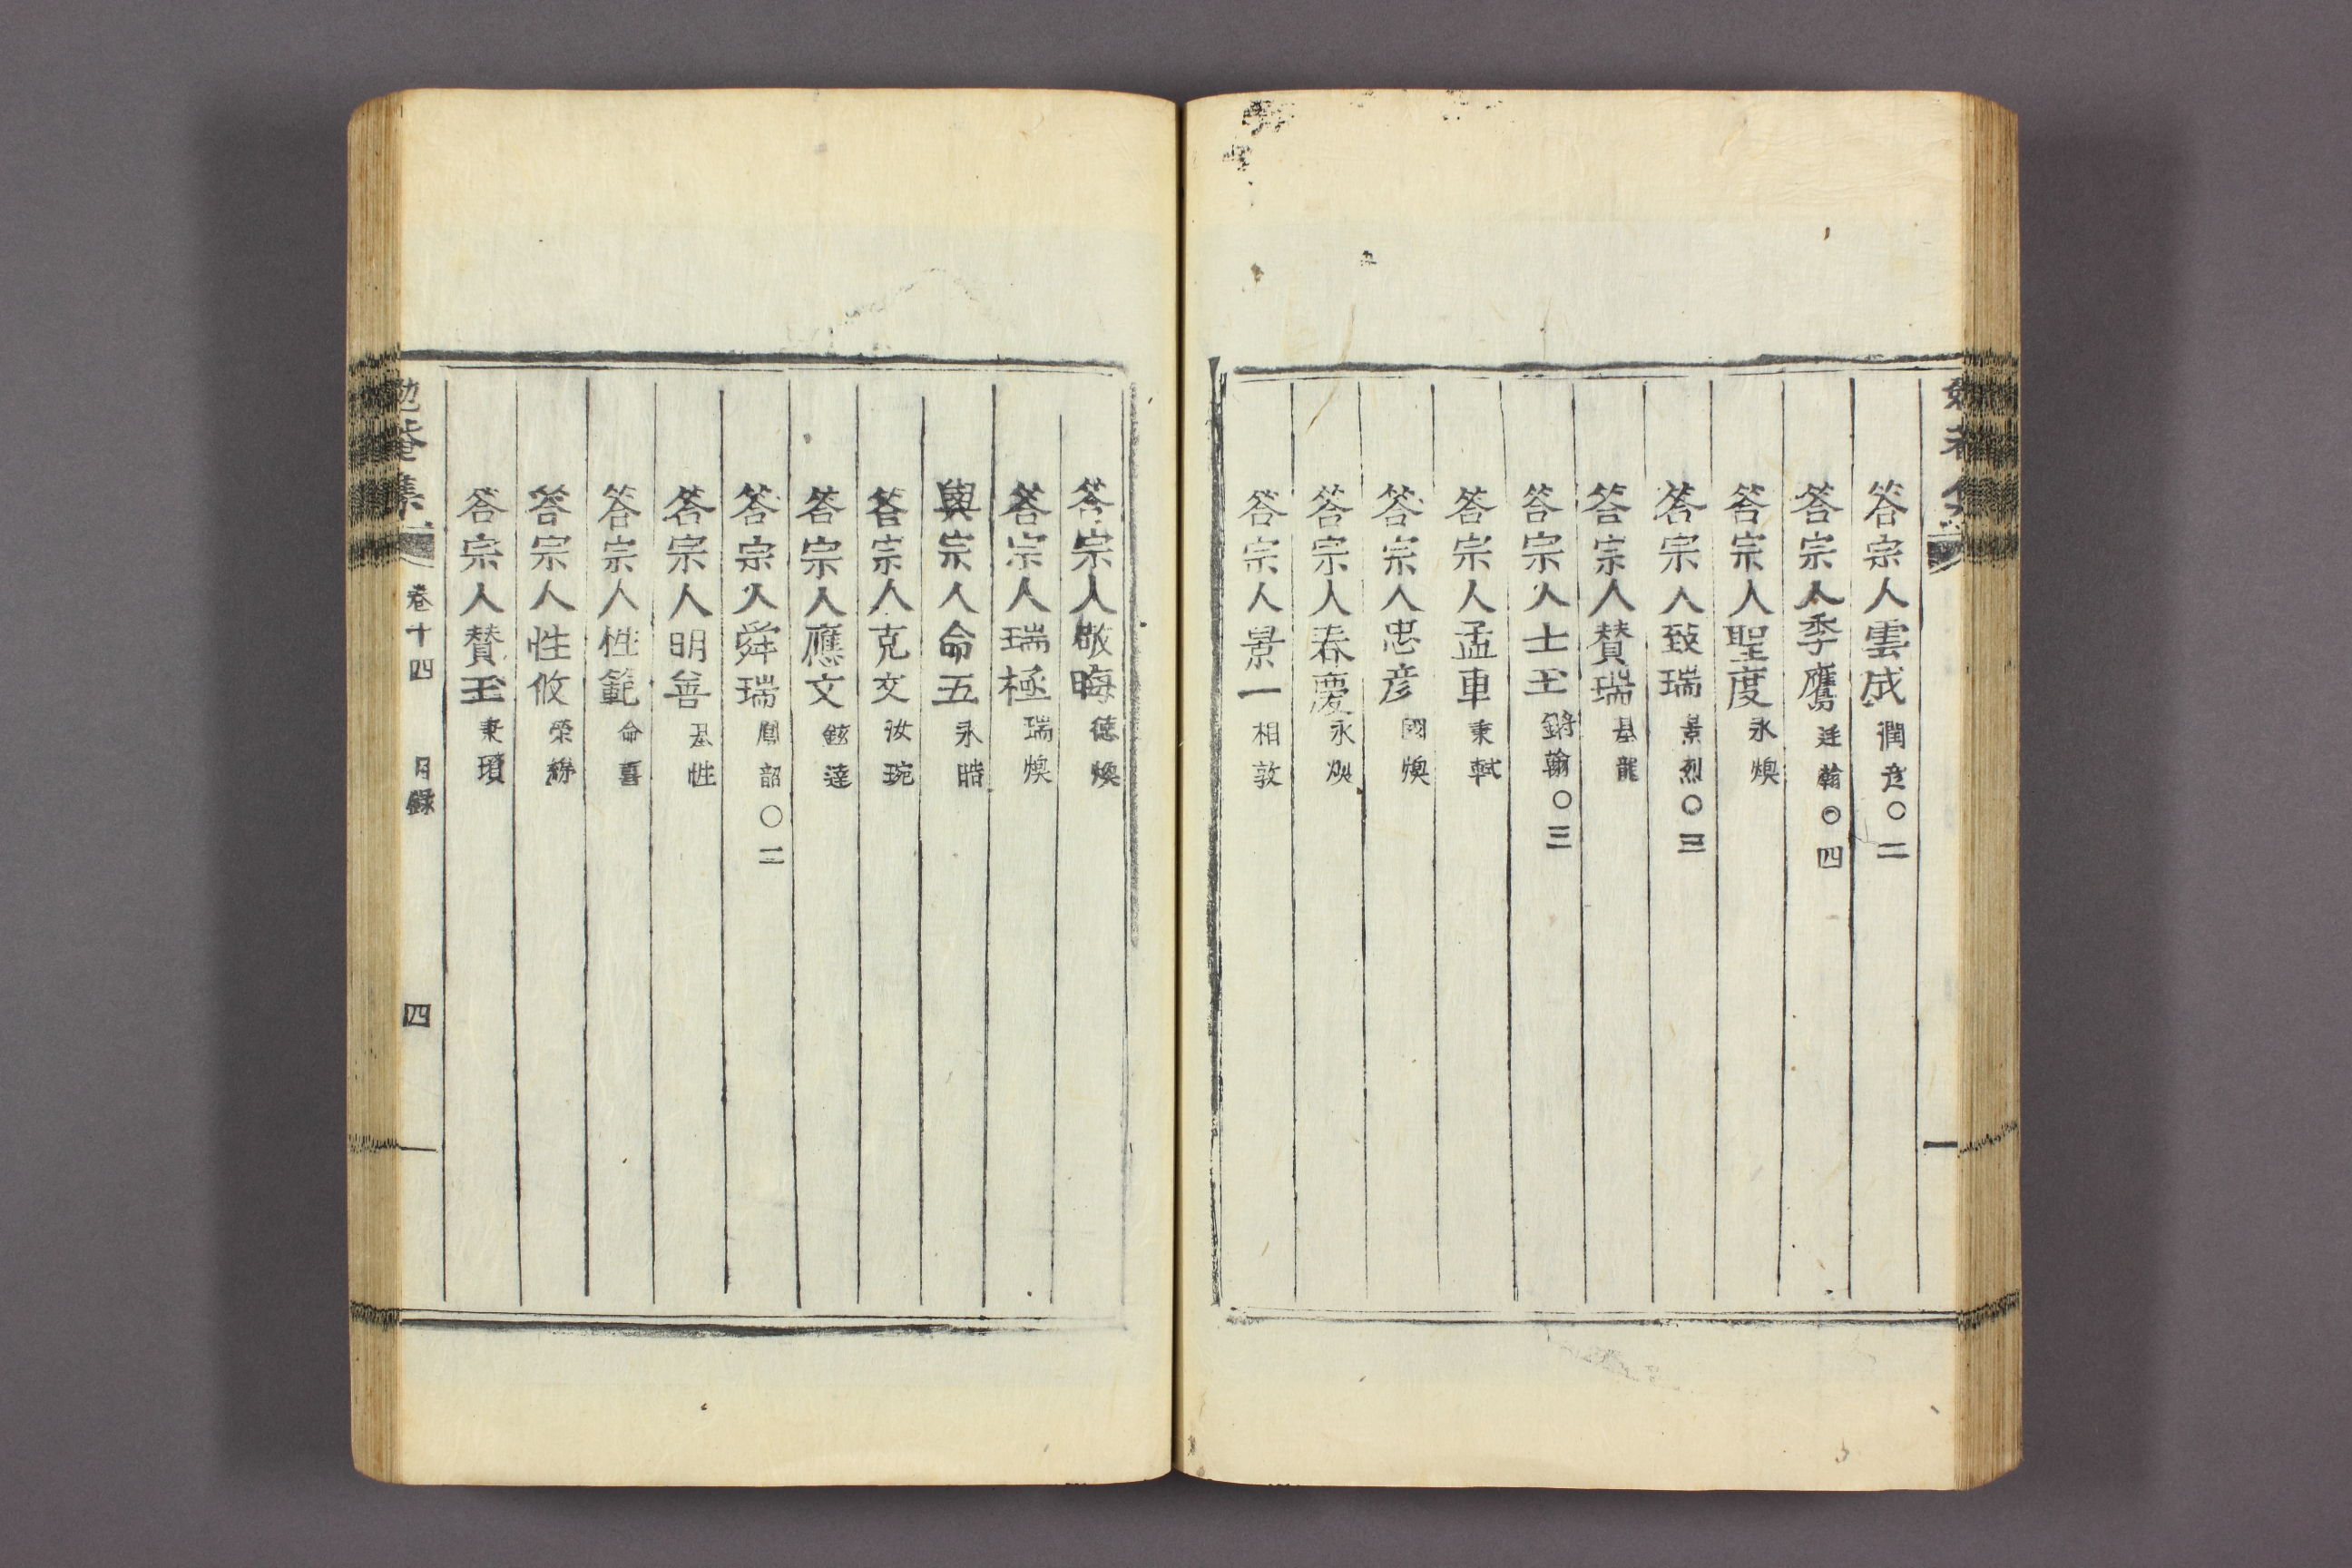 答宗人雲成 潤彦○二
答宗人季鷹 廷翰○四
答宗人聖度 永煥
答宗人致瑞 景烈○三
答宗人贊瑞 基龍
答宗人士玉 鏘翰○三
答宗人孟車 秉軾
答宗人忠彦 國煥
答宗人春慶 永煥
答宗人景一 相敦
答宗人敬晦 德煥
答宗人瑞極 瑞煥
與宗人命五 永晧
答宗人克交 汝琬
答宗人應文 鉉達
答宗人舜瑞 鳳韶○二
答宗人明善 基性
答宗人性範 命喜
答宗人性攸 榮
答宗人贊玉 秉瓆
勉菴集 卷十四 目錄 四